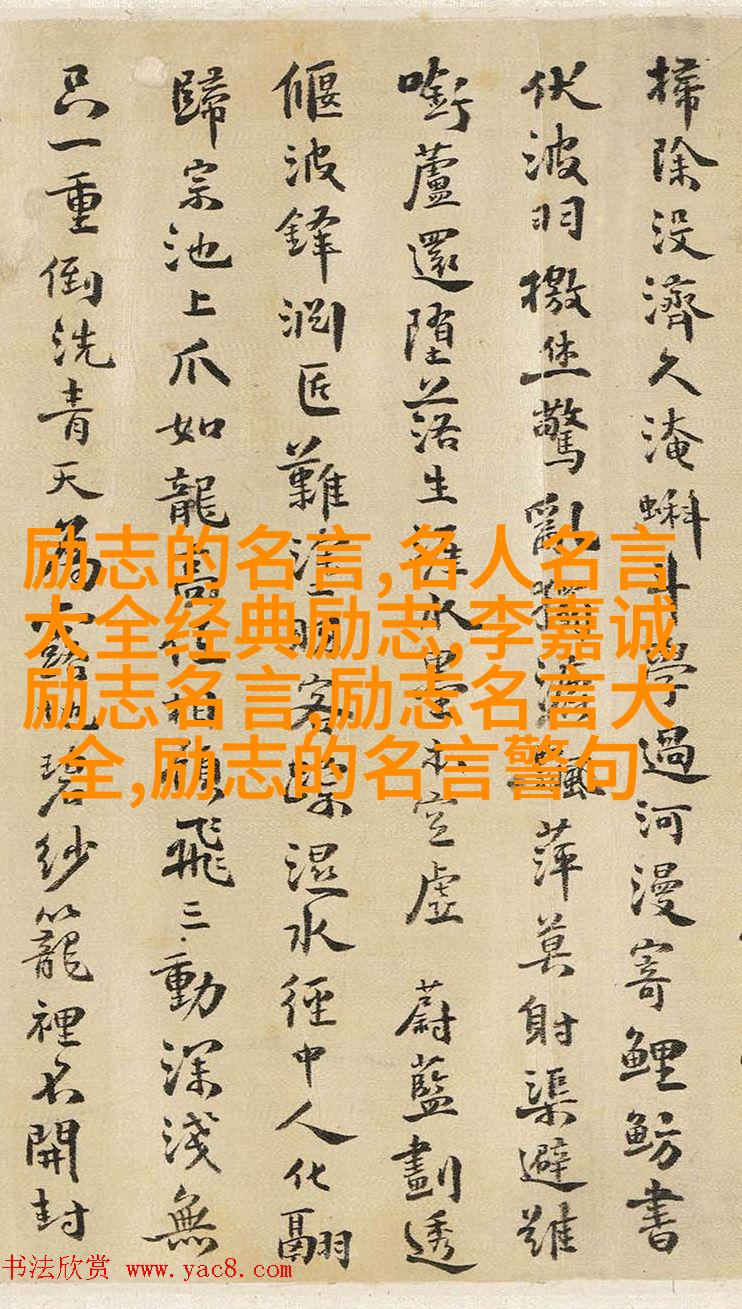 掃除没濟久淹蝌斗學過河漫寄鯉魴書
伏波羽檄 驚亂 萍莫射渠避雖
蘆還墮落生 水墨 空虛 蔚藍劃透
偃波鋒 匠難 濕水徑中人化翮
歸宗池上爪如龍 相顧飛三動深淺無
只一重倒洗青天 碧紗籠裡不開封
励志的名言,名人名言
大全经典励志,李嘉诚
励志名言,励志名言大
全,励志的名言警句
书法欣赏 www.yac8.com